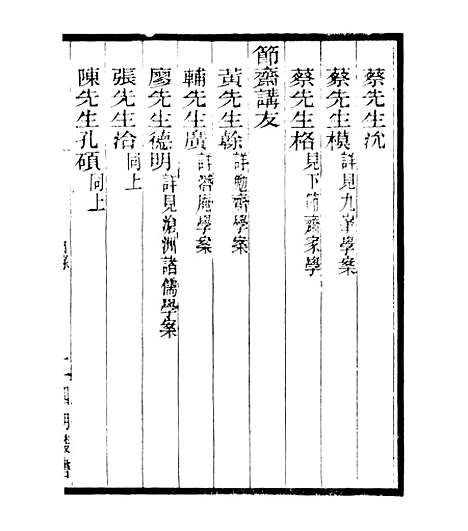 蔡先生沆
蔡先生模詳見九峯學案
蔡先生格見下節齋家學
節齋講友
黃先生榦詳勉齋學案
輔先生廣詳潛庵學案
廖先生德明詳見滄洲諸儒學案
張先生洽同上
陳先生孔碩同上
四明叢書